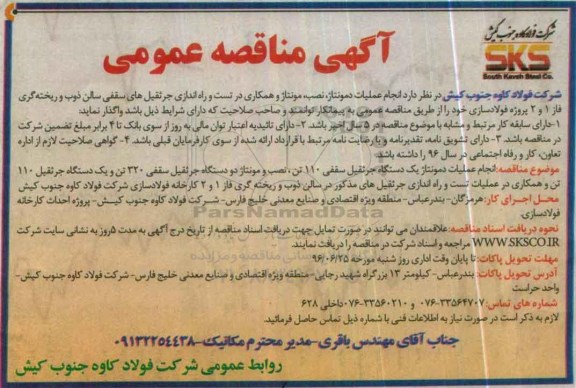 شرکت فولاد کاوه جنوب کیش
SKS
South Kaveh Steel Co.
آگهی مناقصه عمومی
شرکت فولاد کاوه جنوب کیش در نظر دارد انجام عملیات دمونتاژ، نصب، مونتاژ و همکاری در تست و راه اندازی جرثقیل های سقفی سالن ذوب و ریخته‌گری
فاز ۱ و ۲ پروژه فولادسازی خود را از طریق مناقصه عمومی به پیمانکار توانمند و صاحب صلاحیت که دارای شرایط ذیل باشد واگذار نماید:
۱-دارای سابقه کار مرتبط و مشابه با موضوع مناقصه در ۵ سال اخیر باشد. ۲- دارای تائیدیه اعتبار توان مالی به روز از سوی بانک تا ۴ برابر مبلغ تضمین شرکت
در مناقصه باشد. ۳- دارای تشویق نامه، تقدیرنامه و یا رضایت نامه مرتبط با قرارداد ارائه شده از سوی کارفرمایان قبلی باشد. ۴- گواهی صلاحیت لازم از اداره
تعاون، کار و رفاه اجتماعی در سال ۹۶ را داشته باشد.
موضوع مناقصه: انجام عملیات دمونتاژ یک دستگاه جرثقیل سقفی ۱۱۰ تن ، نصب و مونتاژ دو دستگاه جرثقیل سقفی ۳۲۰ تن و یک دستگاه جرثقیل ۱۱۰
تن و همکاری در عملیات تست و راه اندازی جرثقیل های مذکور در سالن ذوب و ریخته گری فاز ۱ و ۲ کارخانه فولادسازی شرکت فولاد کاوه جنوب کیش
محل اجرای کار: هرمزگان- بندرعباس- منطقه ویژه اقتصادی و صنایع معدنی خلیج فارس- شرکت فولاد کاوه جنوب کیش- پروژه احداث کارخانه
فولادسازی.
نحوه دریافت اسناد مناقصه: علاقمندان می توانند در صورت تمایل جهت دریافت اسناد مناقصه از تاریخ درج آگهی به مدت ۵روز به نشانی سایت شرکت
WWW.SKSCO.IR مراجعه و اسناد شرکت در مناقصه را دریافت نمایند.
مهلت تحویل پاکات: تا پایان وقت اداری روز شنبه مورخه ۹۶/۰۶/۲۵
آدرس تحویل پاکات: بندرعباس- کیلومتر ۱۳ بزرگراه شهید رجایی- منطقه ویژه اقتصادی و صنایع معدنی خلیج فارس- شرکت فولاد کاوه جنوب کیش-
واحد حراست
شماره های تماس: ۳۳۵۶۴۷۰۷-۰۷۶ و ۳۳۵۶۰۲۱۰-۰۷۶ داخلی ۶۲۸
لازم به ذکر است در صورت نیاز به اطلاعات فنی با شماره ذیل تماس حاصل فرمائید.
جناب آقای مهندس باقری-مدیر محترم مکانیک-۰۹۱۳۲۲۵۴۴۳۸
روابط عمومی شرکت فولاد کاوه جنوب کیش
ParsNamadData